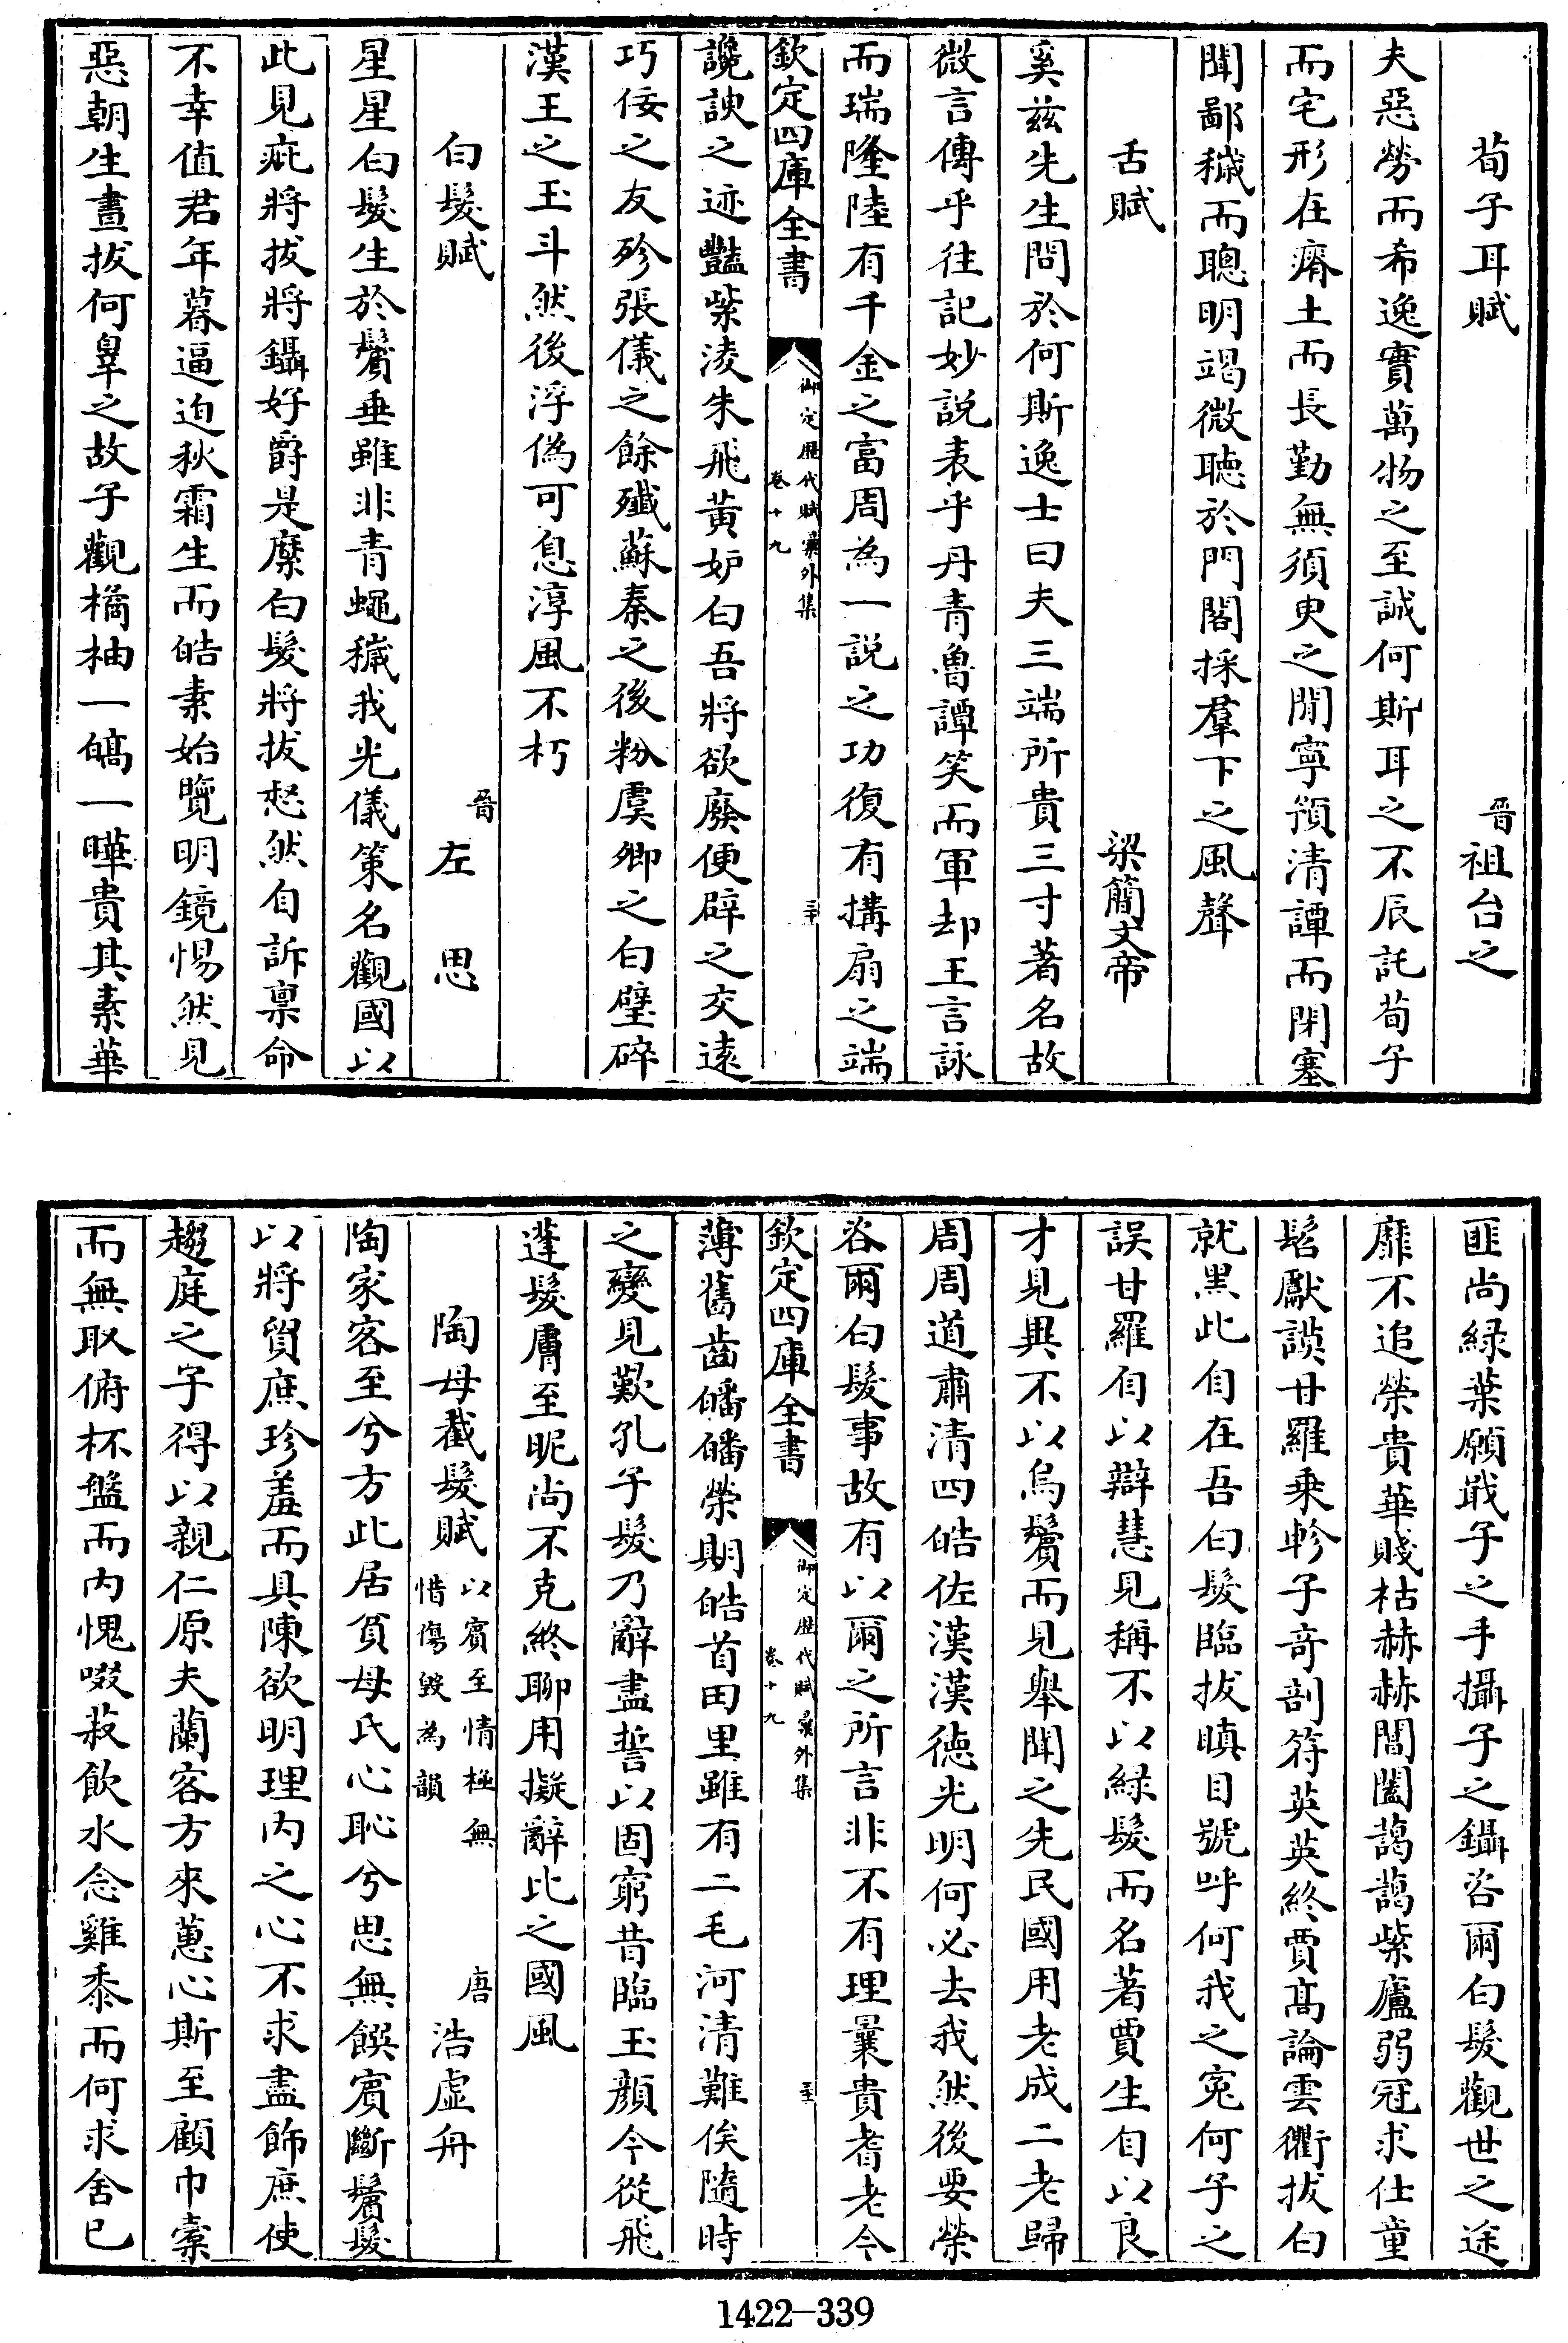 荀子耳賦　晉祖台之
夫惡勞而希逸實萬物之至誠何斯耳之不辰託荀子
而宅形在瘠土而長勤無須臾之閒寧預清譚而閉塞
聞鄙穢而聰明竭微聴於門閤採羣下之風聲
舌賦　梁簡文帝
奚兹先生問於何斯逸士曰夫三端所貴三寸著名故
微言傳乎往記妙説表乎丹青魯譚笑而軍却王言詠
而瑞隆陸有千金之富周為一説之功復有搆扇之端
欽定四庫全書　御定歴代賦彙外集　卷十九　二十
讒諛之迹豔紫淩朱飛黃妒白吾將欲廢便辟之交遠
巧佞之友殄張儀之餘殲蘇秦之後粉虞卿之白璧碎
漢王之玉斗然後浮偽可息淳風不朽
白髮賦　晉左思
星星白髮生於鬢垂雖非青蠅穢我光儀策名觀國以
此見疵將拔將鑷好爵是縻白髮將拔惄然自訴稟命
不幸值君年暮逼迫秋霜生而皓素始覽明鏡惕然見
惡朝生晝拔何辠之故子觀橘柚一皜一曄貴其素華
匪尚緑葉願戢子之手攝子之鑷咨爾白髮觀世之途
靡不追榮貴華賤枯赫赫閶闔藹藹紫廬弱冠求仕童
髫獻謨甘羅乗軫子奇剖符英英終賈髙論雲衢拔白
就黒此自在吾白髮臨拔瞋目號呼何我之寃何子之
誤甘羅自以辯慧見稱不以緑髮而名著賈生自以良
才見異不以烏鬢而見舉聞之先民國用老成二老歸
周周道肅清四皓佐漢漢徳光明何必去我然後要榮
咨爾白髮事故有以爾之所言非不有理曩貴耆老今
欽定四庫全書　御定歴代賦彙外集　卷十九　至
薄舊齒皤皤榮期皓首田里雖有二毛河清難俟隨時
之變見歎孔子髮乃辭盡誓以固窮昔臨玉顔今從飛
蓬髮膚至昵尚不克終聊用擬辭比之國風
陶母截髮賦　以賓至情極無惜傷毀為韻　唐浩虚舟
陶家客至兮方此居貧母氏心恥兮思無饌賓斷鬢髮
以將貿庶珍羞而具陳欲明理内之心不求盡飾庶使
趨庭之子得以親仁原夫蘭客方來蕙心斯至顧巾橐
而無取俯杯盤而内愧啜菽飲水念雞黍而何求舍己
1422-339